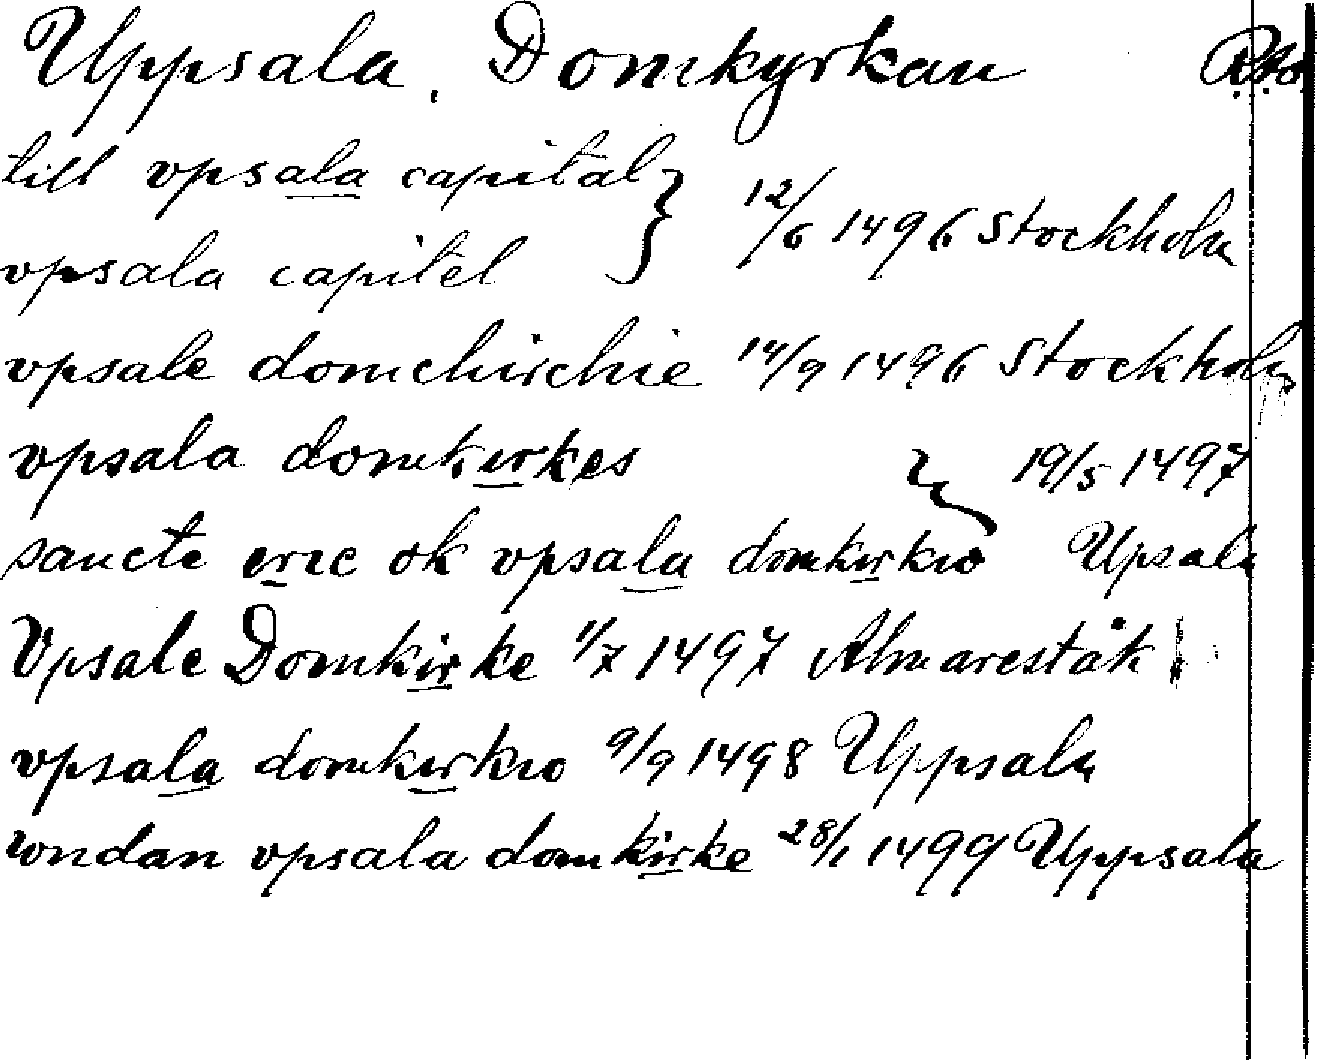 Uppsala, Domkyrkan
till vpsala capital } 12/6 1496 Stockholm
vpsala capitel
vpsale domchirchie 14/9 1496 Stockholm
vpsala domkirkes } 19/5 1497
sancte eric ok vpsala domkirkio Upsala
Vpsale Domkirke 1/7 1497 Almarestäk
vpsala domkirkio 9/9 1498 Uppsala
wndan vpsala domkirke 28/1 1499 Uppsala